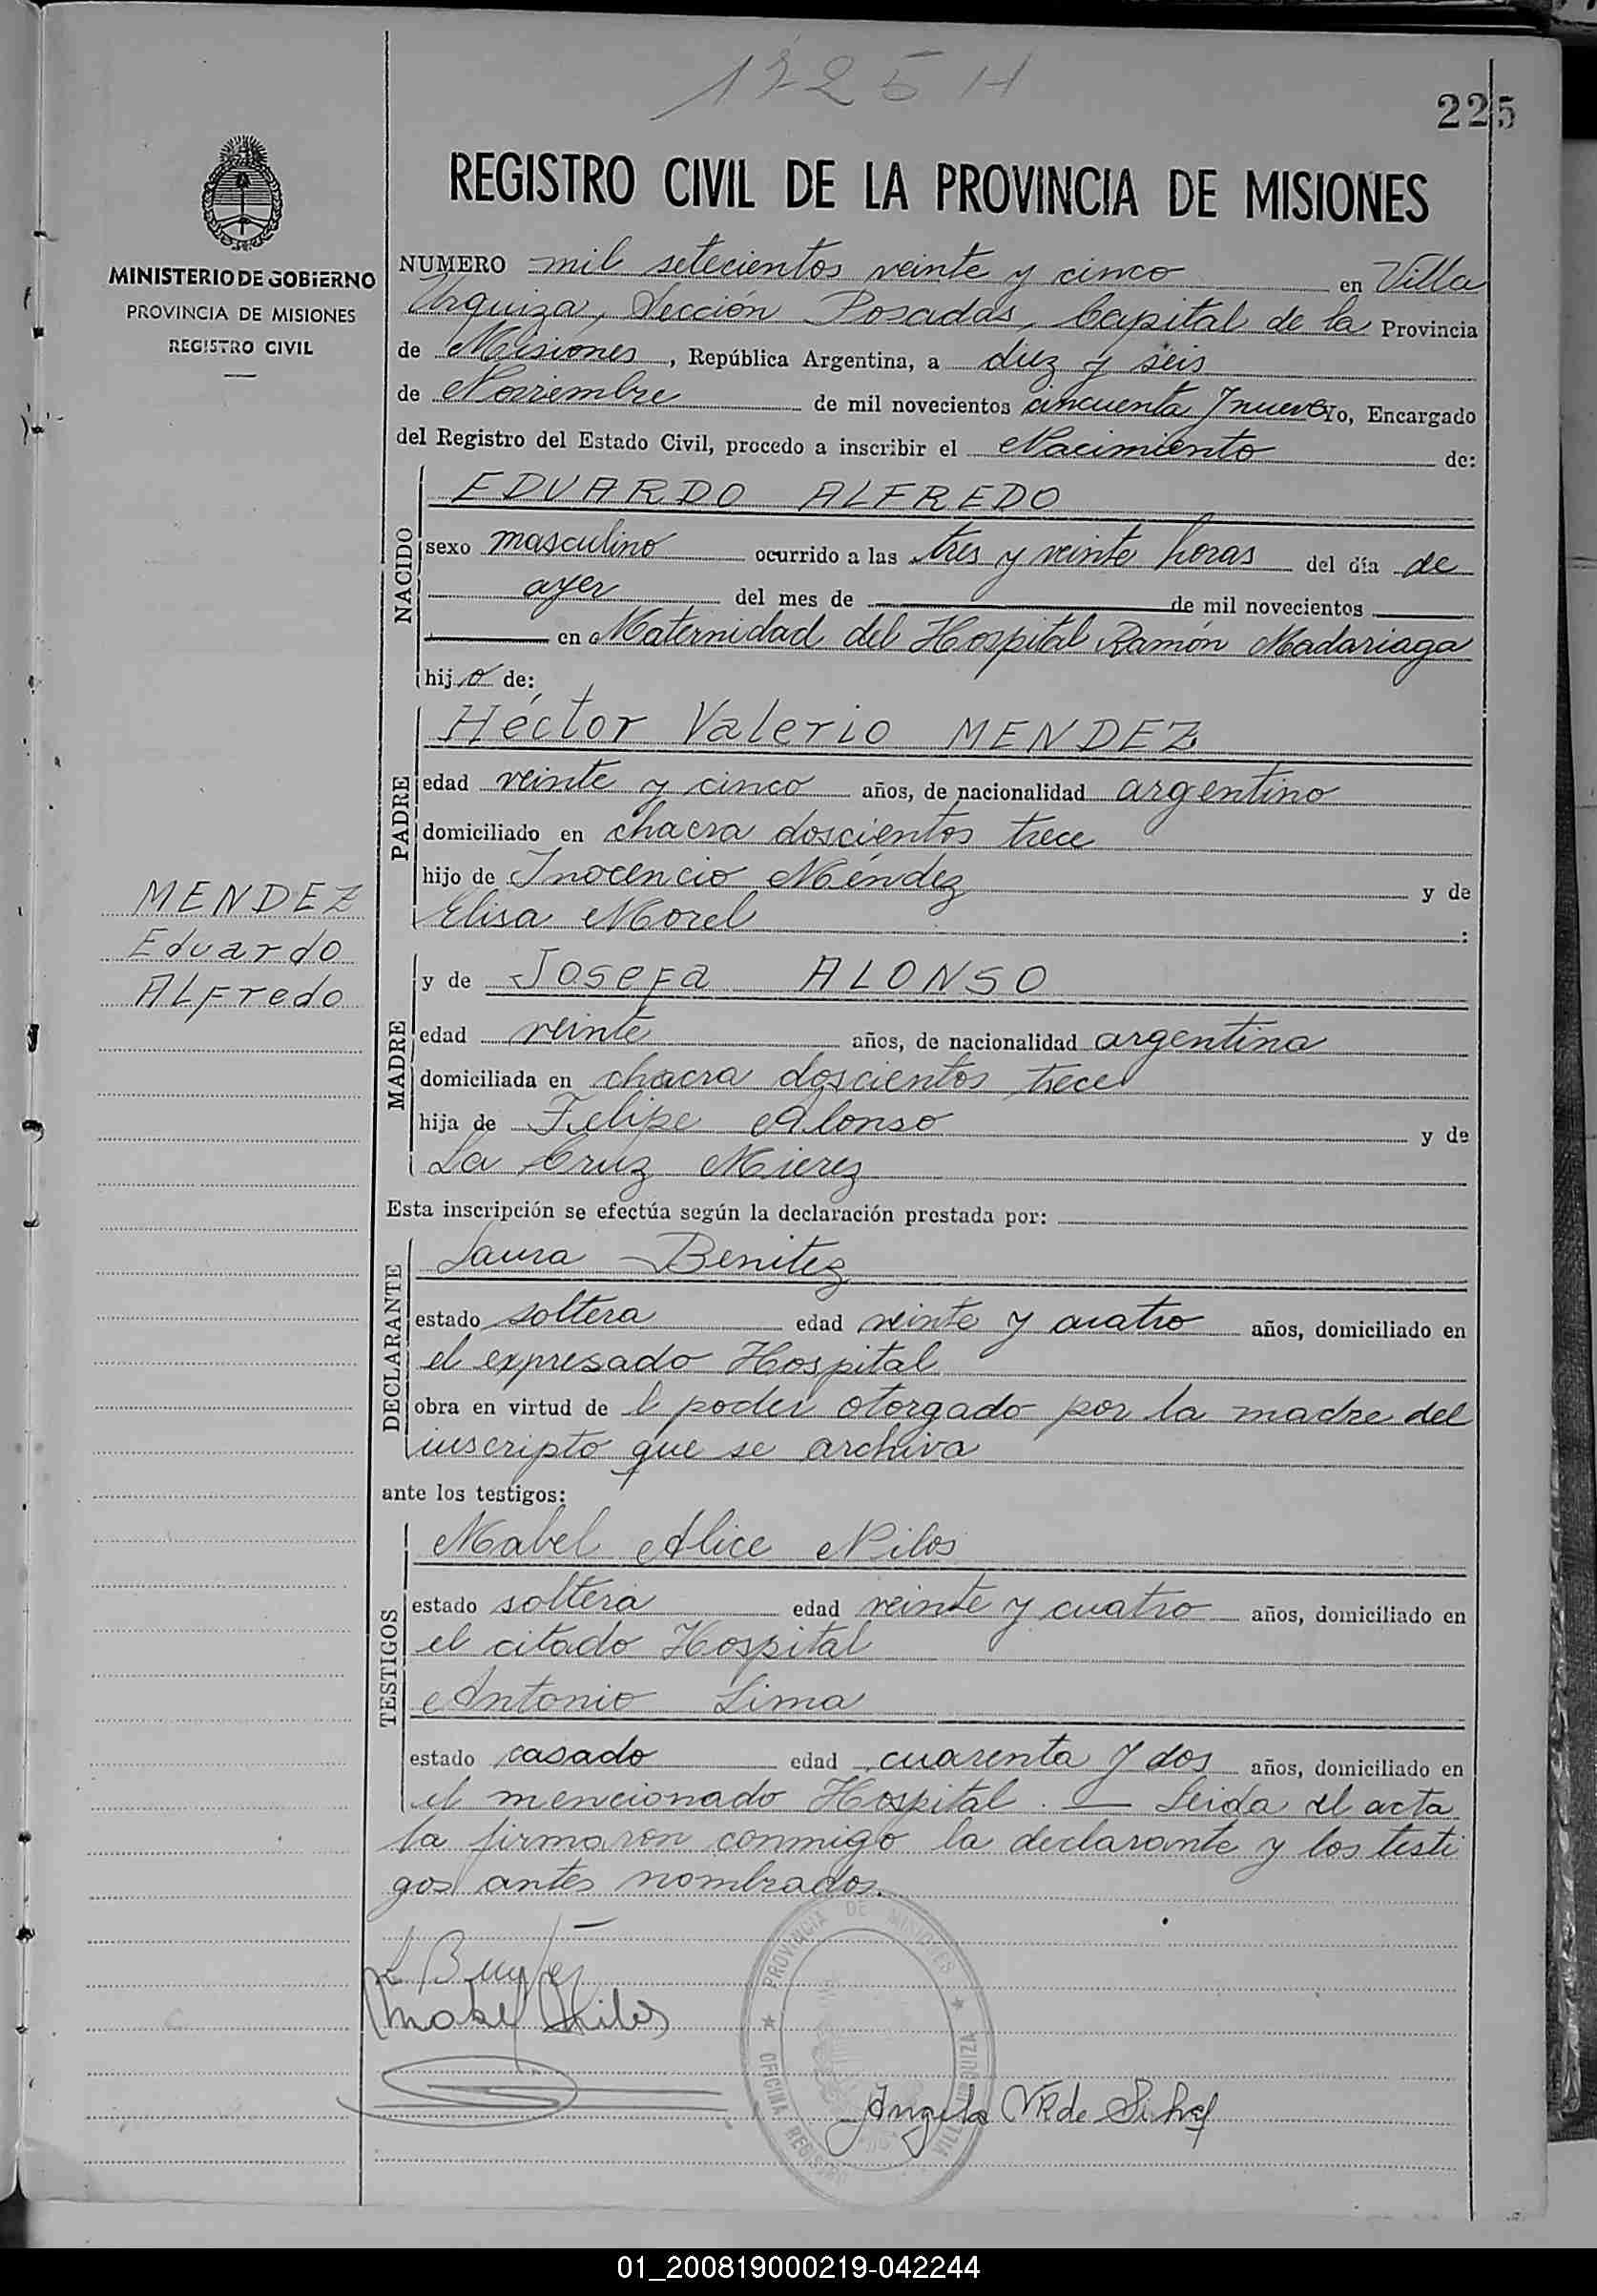 1725 H
225
REGISTRO CIVIL DE LA PROVINCIA DE MISIONES
MINISTERIO DE GOBIERNO
PROVINCIA DE MISIONES
REGISTRO CIVIL
NUMERO mil setecientos veinte y cinco en Villa
Urquiza, Sección Posadas, Capital de la Provincia
de Misiones, República Argentina, a diez y seis
de Noviembre de mil novecientos cincuenta y nueve Yo, Encargado
del Registro del Estado Civil, procedo a inscribir el Nacimiento de:
NACIDO
EDUARDO ALFREDO
sexo masculino ocurrido a las tres y veinte horas del día de
ayer del mes de de mil novecientos
en Maternidad del Hospital Ramón Madariaga
hijo de:
PADRE
Héctor Valerio MENDEZ
edad veinte y cinco años, de nacionalidad argentino
domiciliado en chacra doscientos trece
hijo de Inocencio Méndez y de
Elisa Morel :
MENDEZ
Eduardo
ALFredo
MADRE
y de Josefa ALONSO
edad veinte años, de nacionalidad argentina
domiciliada en chacra doscientos trece
hija de Felipe Alonso y de
La Cruz Mierez
Esta inscripción se efectúa según la declaración prestada por:
DECLARANTE
Laura Benitez
estado soltera edad veinte y cuatro años, domiciliado en
el expresado Hospital
obra en virtud de l poder otorgado por la madre del
inscripto que se archiva
ante los testigos:
TESTIGOS
Mabel Alice Nilos
estado soltera edad veinte y cuatro años, domiciliado en
el citado Hospital
Antonio Lima
estado casado edad cuarenta y dos años, domiciliado en
el mencionado Hospital. — Leida el acta
la firmaron conmigo la declarante y los testi
gos antes nombrados.
PROVINCIA DE MISIONES
OFICINA REGISTRO VILLA URQUIZA
Angela de
01_200819000219-042244